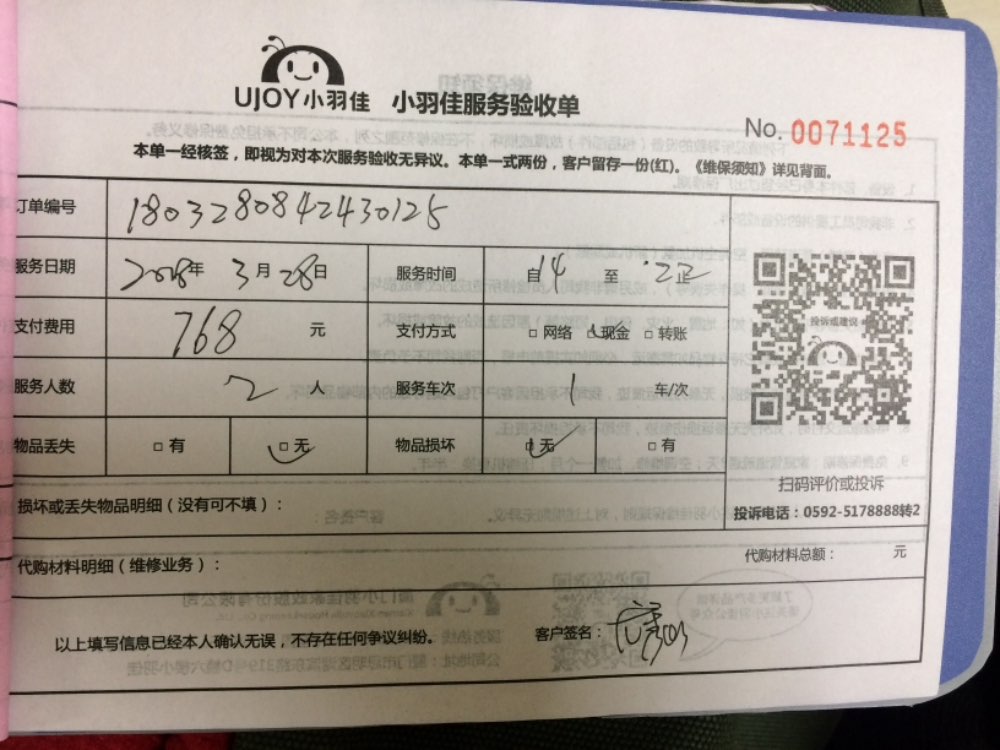 UJOY小羽佳 小羽佳服务验收单
No. 0071125
本单一经核签，即视为对本次服务验收无异议。本单一式两份，客户留存一份(红)。《维保须知》详见背面。
订单编号 1803280842430125
服务日期 2018年 3月28日 服务时间 自14 至
支付费用 768 元 支付方式 □ 网络 现金 □ 转账
投诉或建议
服务人数 2 人 服务车次 1 车/次
物品丢失 □ 有 □ 无 物品损坏 □ 无 □ 有
扫码评价或投诉
损坏或丢失物品明细（没有可不填）：
投诉电话：0592-5178888转2
代购材料明细（维修业务）：
代购材料总额： 元
以上填写信息已经本人确认无误，不存在任何争议纠纷。 客户签名：